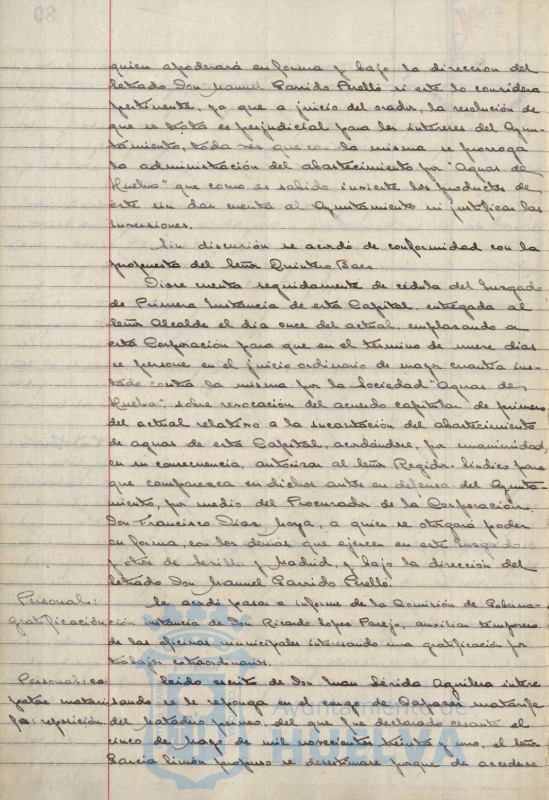 quien apoderará en forma y bajo la direccion del
letrado Don Manuel Garrido Perelló si este lo considera
pertinente, ya que a juicio del orador, la resolución de
que se trata es perjudicial para los intereses del Ayun-
tamiento, toda vez que en la misma se prorroga
la administración del abastecimiento por "Aguas de
Huelva" que como es sabido invierte los productos de
este sin dar cuenta al Ayuntamiento ni justificar las
inversiones.
Sin discusión se acordó de conformidad con la
propuesta del Señor Quintero Baez.
Diose cuenta seguidamente de cédula del Juzgado
de Primera Instancia de esta Capital, entregada al
Señor Alcalde el dia once del actual, emplazando a
esta Corporación para que en el término de nueve dias
se persone en el juicio ordinario de mayor cuantía ins-
tado contra la misma por la Sociedad "Aguas de
Huelva", sobre revocación del acuerdo capitular de primero
del actual relativo a la incautación del abastecimiento
de aguas de esta Capital, acordándose, por unanimidad,
en su consecuencia, autorizar al Señor Regidor Síndico para
que comparezca en dichos autos en defensa del Ayunta-
miento, por medio del Procurador de la Corporación
Don Francisco Diaz Moya, a quien se otorgará poder
en forma, con los demas que ejercen en este Juzgado
y otros de Sevilla y Madrid, y bajo la dirección del
letrado Don Manuel Garrido Perelló.
Personal: Se acordó pasar a informe de la Comisión de Goberna-
gratificación ción instancia de Don Ricardo Lopez Parejo, auxiliar temporero
de las oficinas municipales interesando una gratificación por
trabajos extraordinarios.
Personal: ca- Leido escrito de Don Juan Mérida Aguilera intere-
pataz matari- sando se le reponga en el cargo de Capataz matarife
fe: reposición. del Matadero público, del que fue declarado cesante el
cinco de Mayo de mil novecientos treinta y uno, el Señor
García Limón propuso se desestimase porque de accederse
Ayuntamiento de
HUELVA